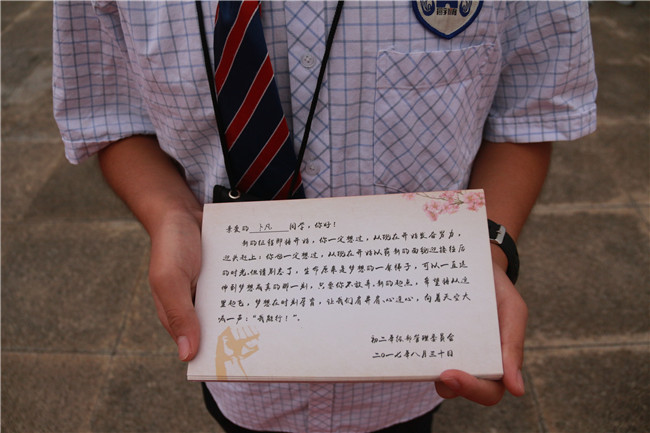 亲爱的 卜凡 同学,你好!
新的征程即将开始,你一定想过,从现在开始发奋努力,
迎头赶上;你也一定想过,从现在开始以崭新的面貌迎接往后
的时光。但请别忘了,生命原来是梦想的一架梯子,可以一直延
伸到梦想成真的那一刻,只要你不放弃。新的起点,希望将从这
里起飞,梦想在时刻孕育,让我们肩并肩、心连心,向着天空大
喊一声:“我能行!”。
初二年级部管理委员会
二〇一七年八月三十日